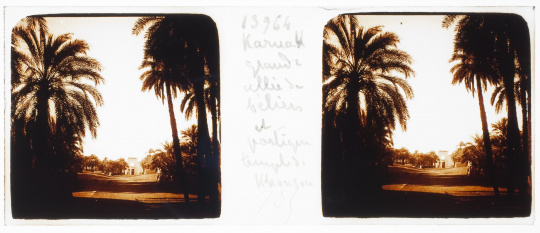 13964
Karnak
grande
allée de
béliers
et
portique
temple de
Khonsou